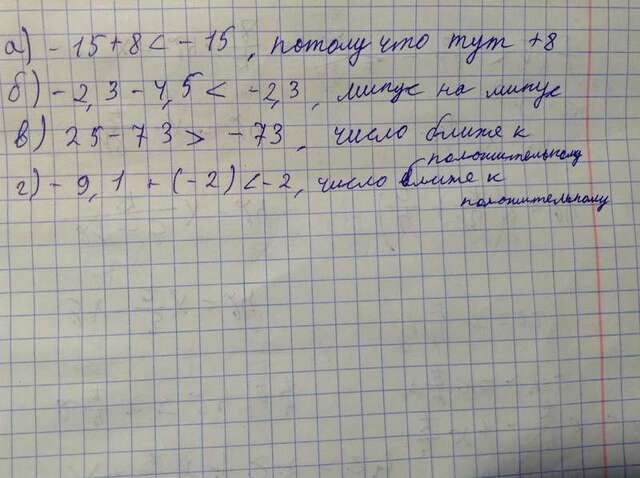 а) -15+8 < -15, потому что тут +8
б) -2,3 - 4,5 < -2,3, минус на минус
в) 25-73 > -73, число ближе к
положительному
г) -9,1 + (-2) < -2, число ближе к
положительному